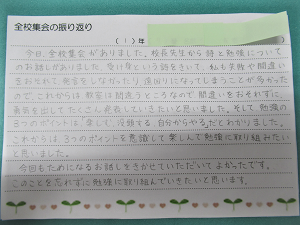 全校集会の振り返り
(1)年
今日、全校集会がありました。校長先生から師と勉強について
のお話がありました。受け身という話をきいて、私も失敗や間違い
をおそれて発言をしなかったり、遠回りになってしまうことが多かった
ので、これからは教室は間違うところなので間違いをおそれずに
勇気を出してたくさん発表していきたいと思いました。そして勉強の
3つのポイントは「楽しむ、没頭する、自分からやる」だとわかりました。
これからは3つのポイントを意識して楽しんで勉強に取り組みたい
と思いました。
今回もためになるお話しをきかせていただいてよかったです。
このことを忘れずに勉強に取り組んでいきたいと思います。